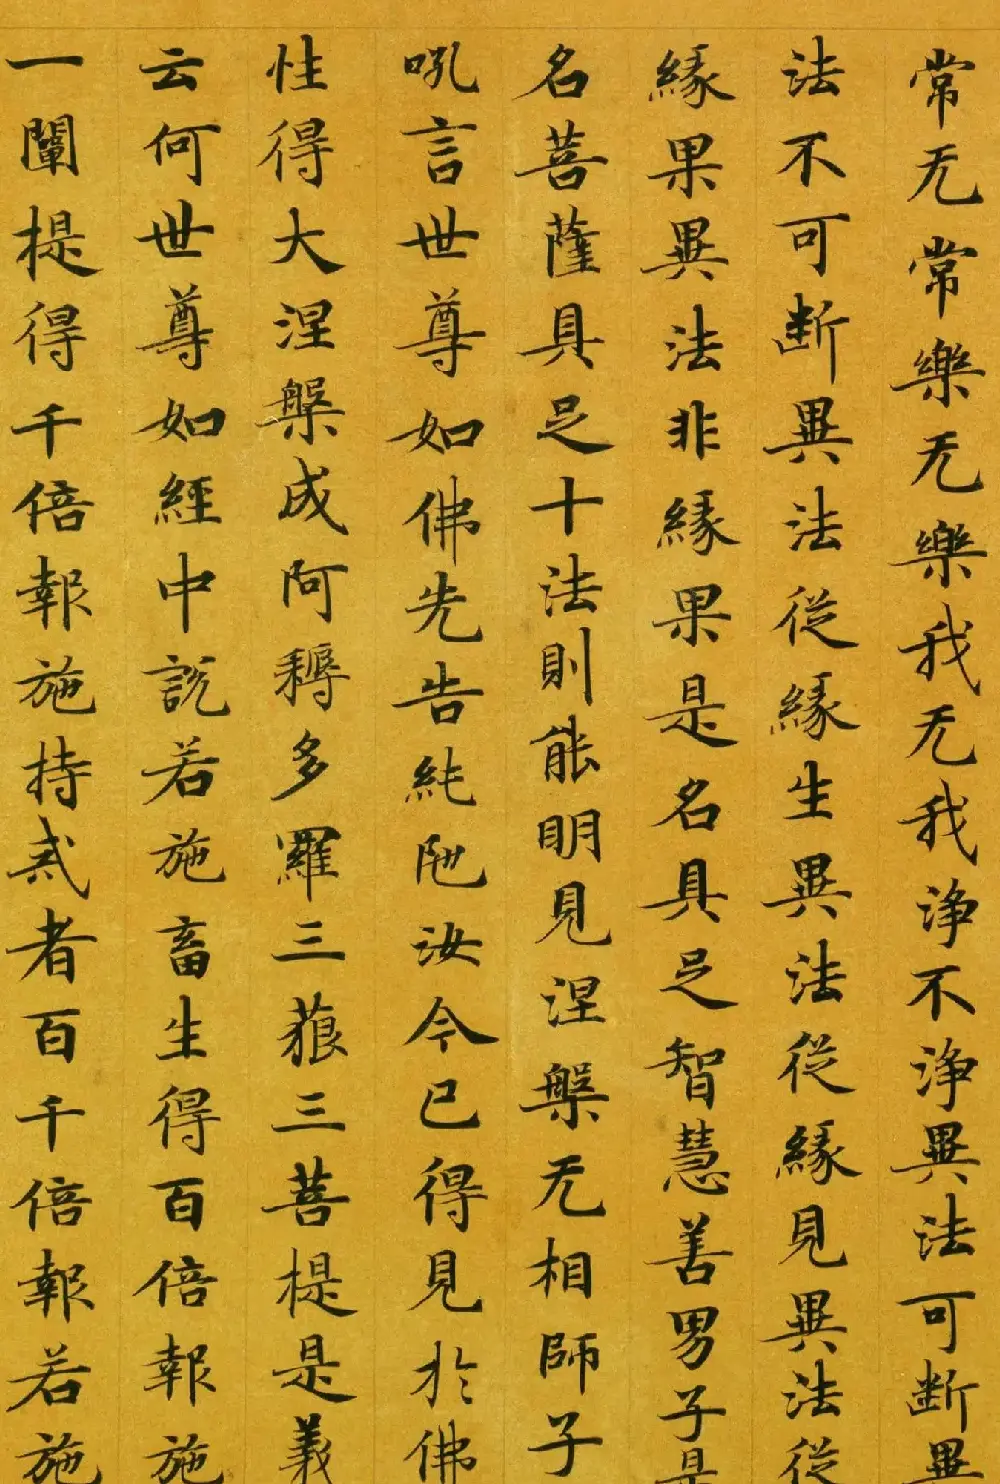 常无常樂无樂我无我淨不淨異法可断異
法不可断異法從緣生異法從緣見異法從
緣果異法非緣果是名具足智慧善男子是
名菩薩具足十法則能明見涅槃无相師子
吼言世尊如佛先告純陁汝今已得見於佛
性得大涅槃成阿耨多羅三藐三菩提是義
云何世尊如經中說若施畜生得百倍報施
一闡提得千倍報施持戒者百千倍報若施